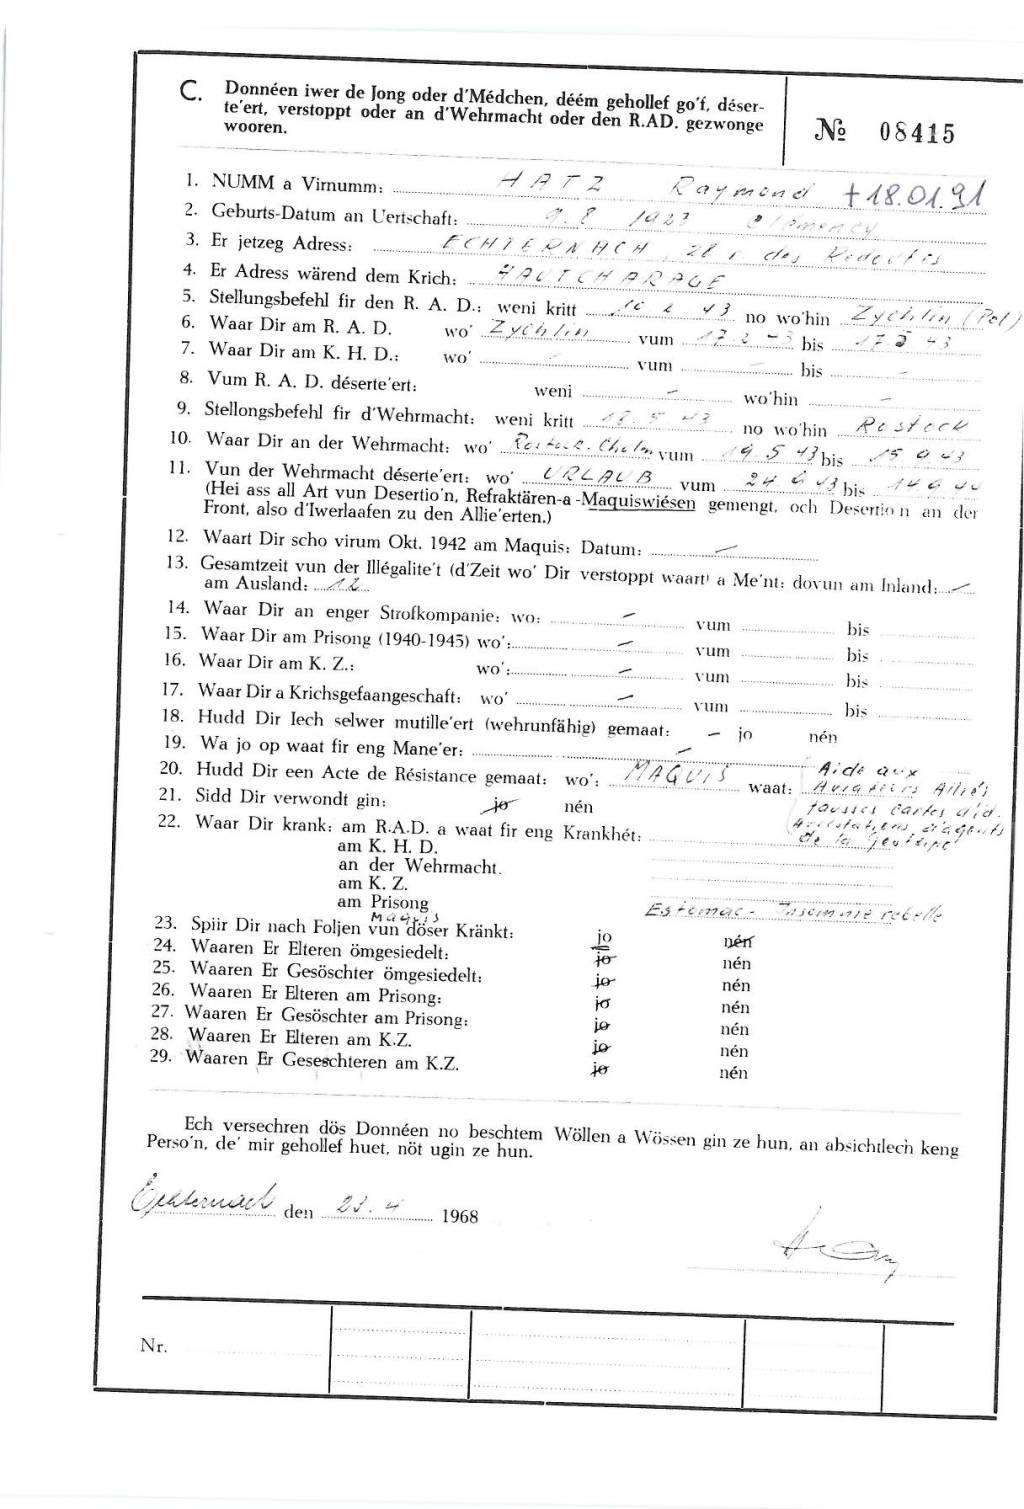 C. Donnéen iwer de Jong oder d'Médchen, déém gehollef go'f, déser-
te'ert, verstoppt oder an d'Wehrmacht oder den R.AD. gezwonge
wooren.
№ 08415
1. NUMM a Virnumm: HATZ Raymond +18.01.91
2. Geburts-Datum an Uertschaft: 9. 8 1923 Clémency
3. Er jetzeg Adress: ECHTERNACH, 28 r. des Redoutes
4. Er Adress wärend dem Krich: HAUTCHARAGE
5. Stellungsbefehl fir den R. A. D.: weni kritt 16 2 43 no wo'hin Zychlin (Pol)
6. Waar Dir am R. A. D. wo' Zychlin vum 17 2 43 bis 17 5 43
7. Waar Dir am K. H. D.: wo' - vum - bis -
8. Vum R. A. D. déserte'ert: weni - wo'hin -
9. Stellongsbefehl fir d'Wehrmacht: weni kritt 18. 5 43 no wo'hin Rostock
10. Waar Dir an der Wehrmacht: wo' Rostock. Cholm vum 19 5 43 bis 15 9 43
11. Vun der Wehrmacht déserte'ert: wo' URLAUB vum 24 9 43 bis 14 9 44
(Hei ass all Art vun Desertio'n, Refraktären-a -Maquiswiésen gemengt, och Desertio n an der
Front, also d'Iwerlaafen zu den Allie'erten.)
12. Waart Dir scho virum Okt. 1942 am Maquis: Datum: -
13. Gesamtzeit vun der Illégalite't (d'Zeit wo' Dir verstoppt waart) a Me'nt: dovun am Inland: -
am Ausland: 12
14. Waar Dir an enger Strofkompanie: wo: - vum bis
15. Waar Dir am Prisong (1940-1945) wo': - vum bis
16. Waar Dir am K. Z.: wo': - vum bis
17. Waar Dir a Krichsgefaangeschaft: wo' - vum bis
18. Hudd Dir Iech selwer mutille'ert (wehrunfähig) gemaat: - jo nén
19. Wa jo op waat fir eng Mane'er: -
20. Hudd Dir een Acte de Résistance gemaat: wo': MAQUIS waat: Aide aux
Aviateurs Alliés
fausses cartes d'id.
Arrestations d'agents
de la Gestapo
21. Sidd Dir verwondt gin: jo nén
22. Waar Dir krank: am R.A.D. a waat fir eng Krankhét:
am K. H. D.
an der Wehrmacht.
am K. Z.
am Prisong
Maquis Estomac - Insomnie rebelle
23. Spiir Dir nach Foljen vun döser Kränkt: jo nén
24. Waaren Er Elteren ömgesiedelt: jo nén
25. Waaren Er Gesöschter ömgesiedelt: jo nén
26. Waaren Er Elteren am Prisong: jo nén
27. Waaren Er Gesöschter am Prisong: jo nén
28. Waaren Er Elteren am K.Z. jo nén
29. Waaren Er Geseschteren am K.Z. jo nén
Ech versechren dös Donnéen no beschtem Wöllen a Wössen gin ze hun, an absichtlech keng
Perso'n, de' mir gehollef huet, nöt ugin ze hun.
Echternach den 23. 4 1968
Nr.